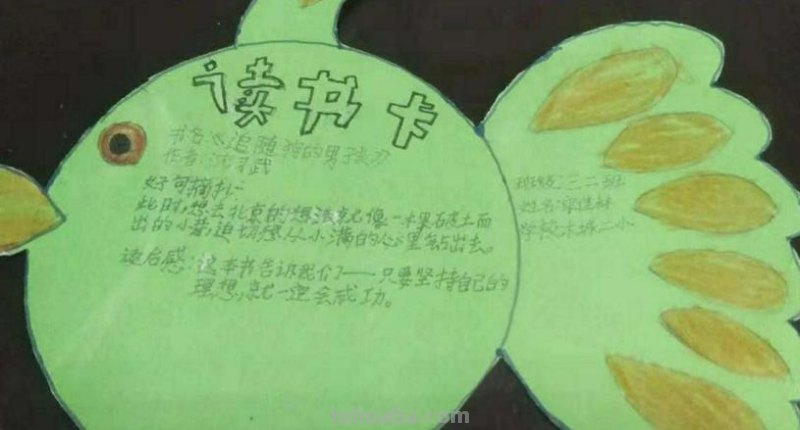 读书卡
书名:《追随狗的男孩》
作者:沈习武
好句摘抄:
此时,想去北京的想法就像一棵破土而
出的小草,迫切想从小满的心里钻出来。
读后感:这本书告诉我们——只要坚持自己的
理想,就一定会成功。
班级:三二班
姓名:佳林
学校:木城二小